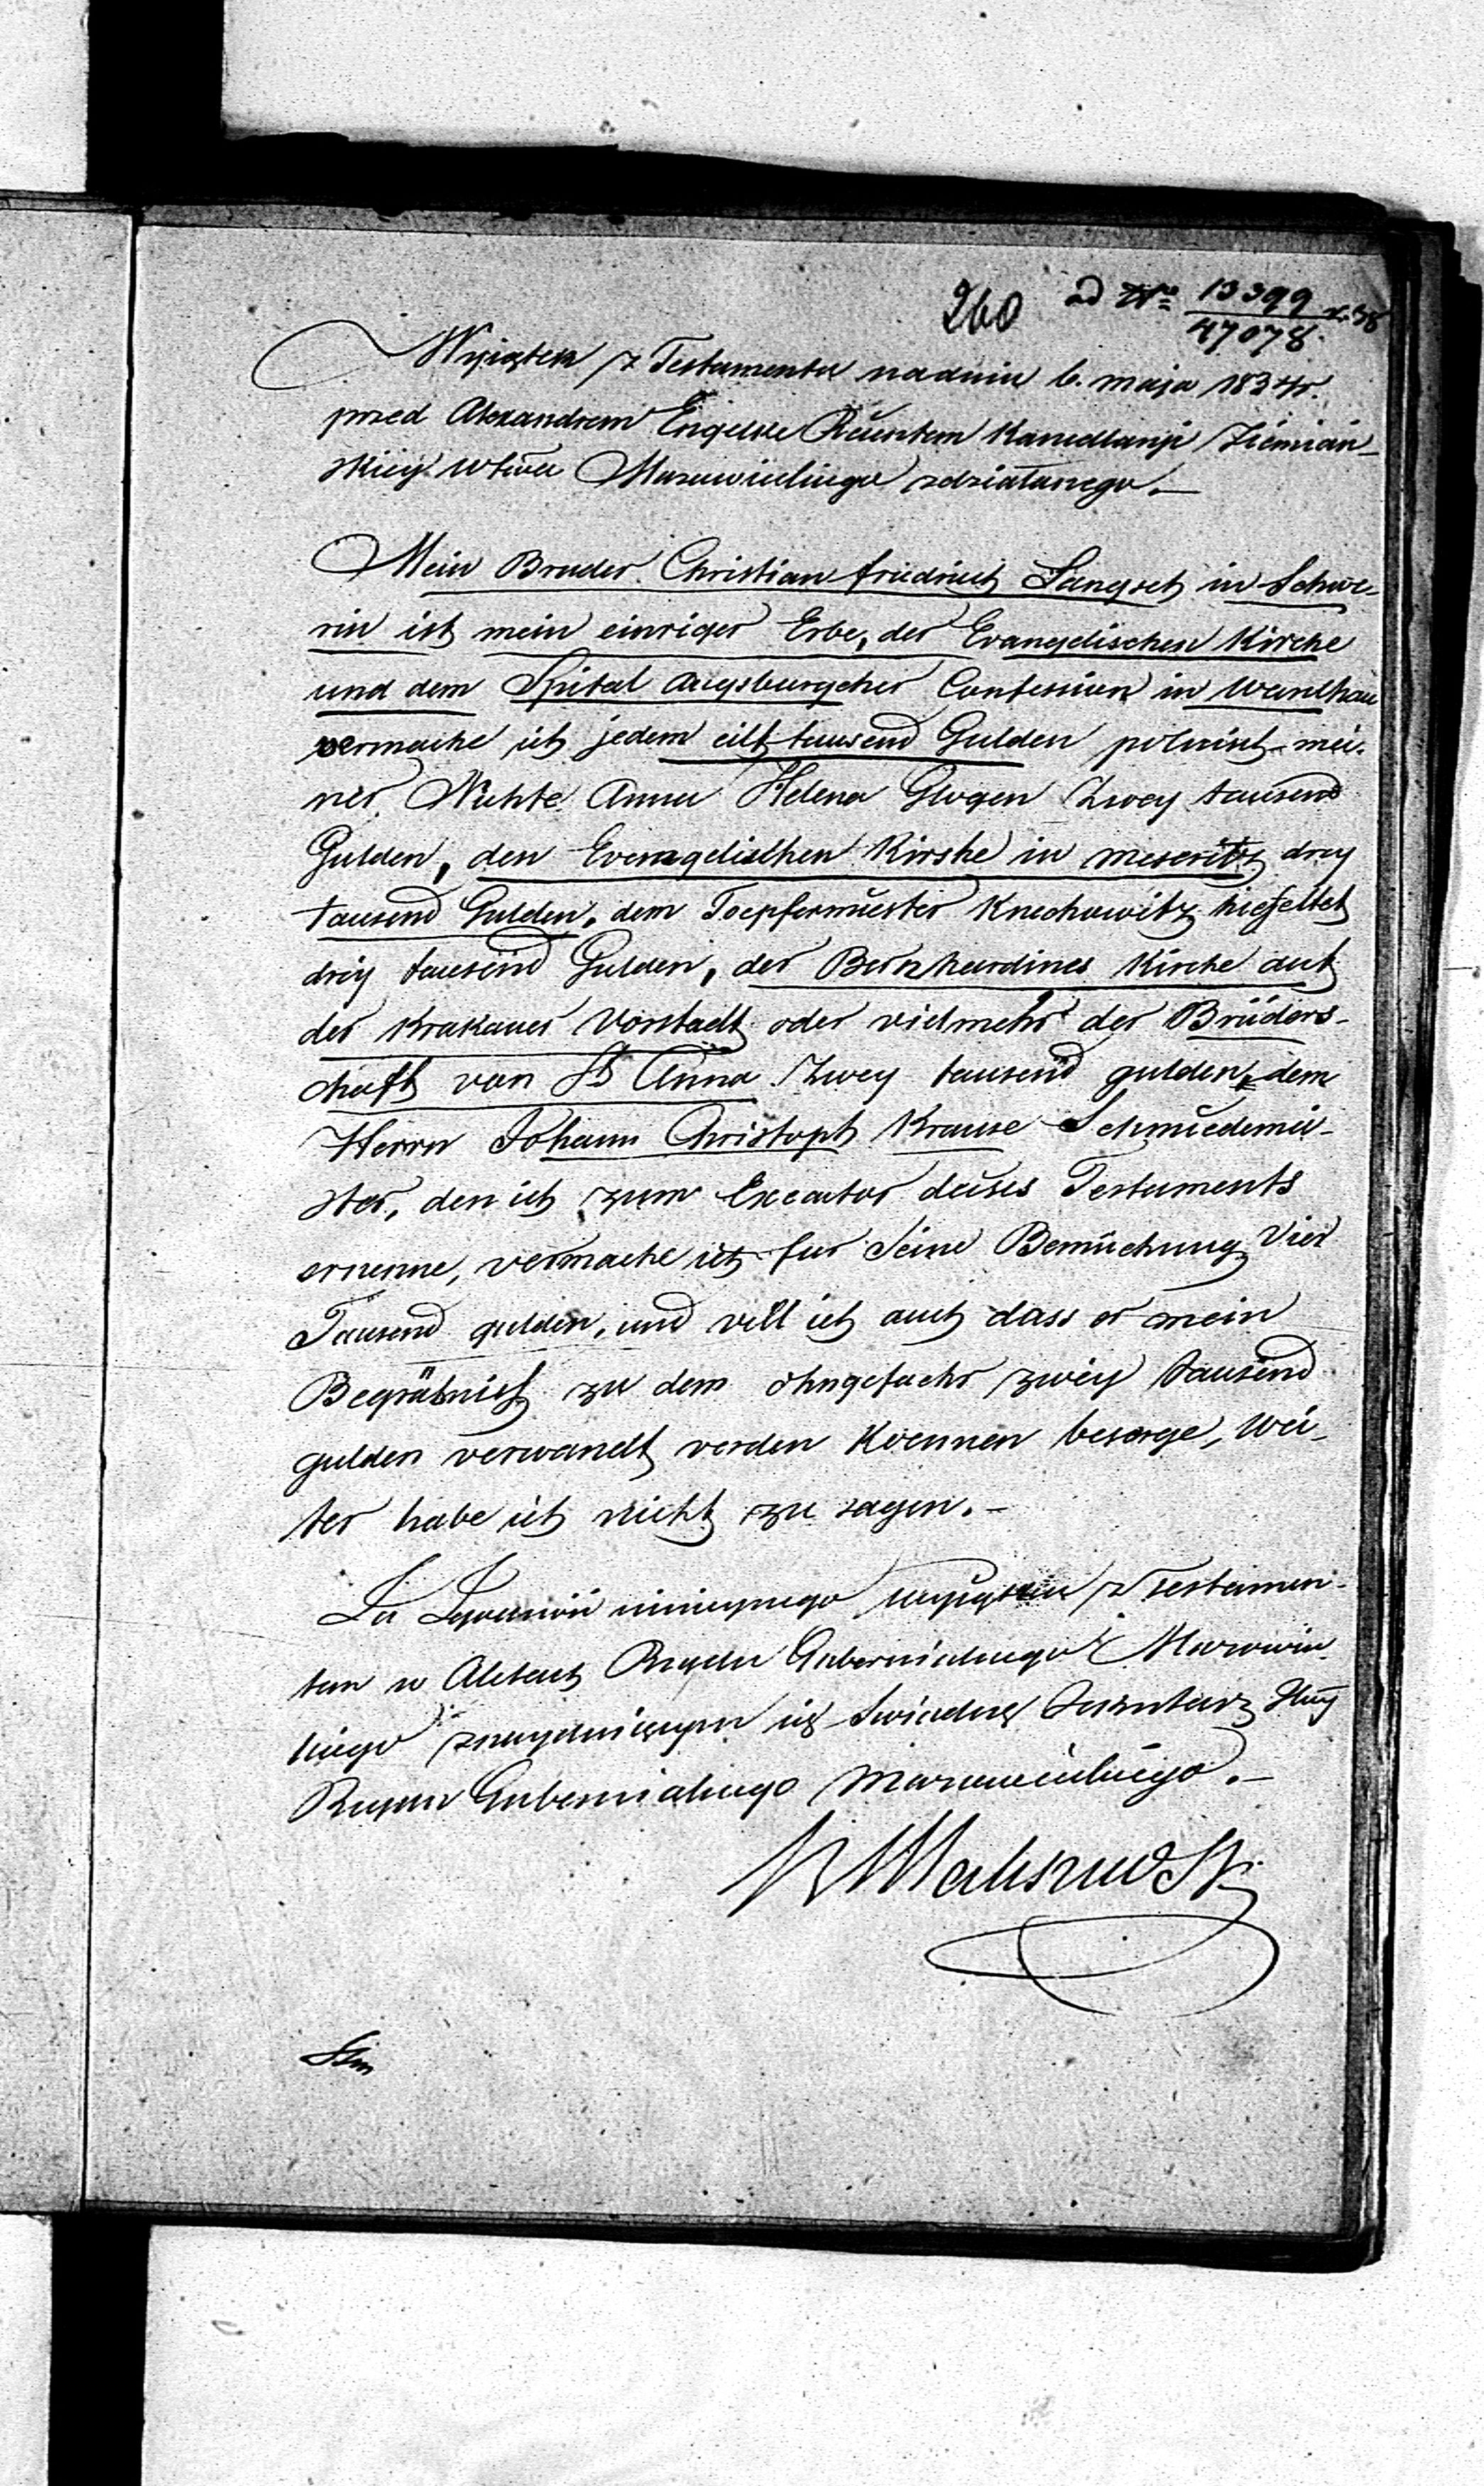 260 ad No 13399
47078.
Wyiątek z Testamentu na dniu 6. maja 1834 r.
przed Alexandrem Engelke Rejentem Kancellaryi Ziemiań-
skiey Wtwa Mazowieckiego zdziałanego.—
Mein Bruder Christian Friedrich Langset in Schwe-
rin ist mein einziger Erbe, der Evangelischen Kirche
und dem Spital Augsburgcher Confession in Warschau
vermache ich jedem eilf tausend Gulden polnisch mei-
ner Nichte Anna Helena Glogen Zwey tausend
Gulden, den Evangelischen Kirshe in Meseritz drey
tausend Gulden, dem Toepfermeister Knechowitz hieselbst
drey tausend Gulden, der Bernhardiner Kirche auf
der Krakauer Vorstadt oder vielmehr der Brüders-
chaft von St Anna Zwey tausend gulden, dem
Herrn Johann Christoph Krause Schmiedemei-
ster, den ich zum Executor dieses Testaments
ernenne, vermache ich fur Seine Bemüchung Vier
Tausend gulden, und vill ich auch dass er mein
Begräbniss zu dem ohngefaehr zwey tausend
gulden verwandt verden Koennen besorge, Wei-
ter habe ich nicht zu sagen.—
Za Zgodność ninieyszego wyiątku z Testamen-
tem w Aktach Rządu Gubernialnego Mazowiec-
kiego znayduiącym się Swiadczę Sekretarz
Rządu Gubernialnego Mazowieckiego.—